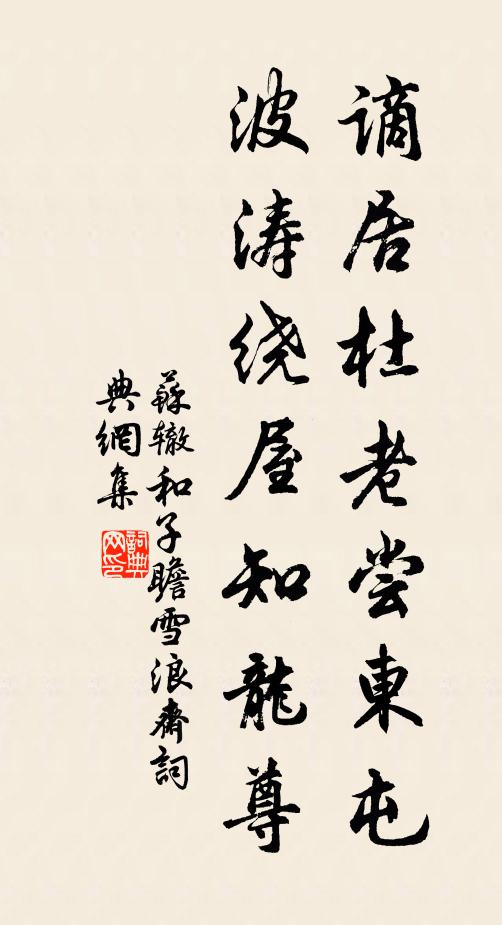 谪居杜老尝東屯
波涛绕屋知龍尊
蘇辙和子瞻雪浪齋詞
典網集
詞典网印